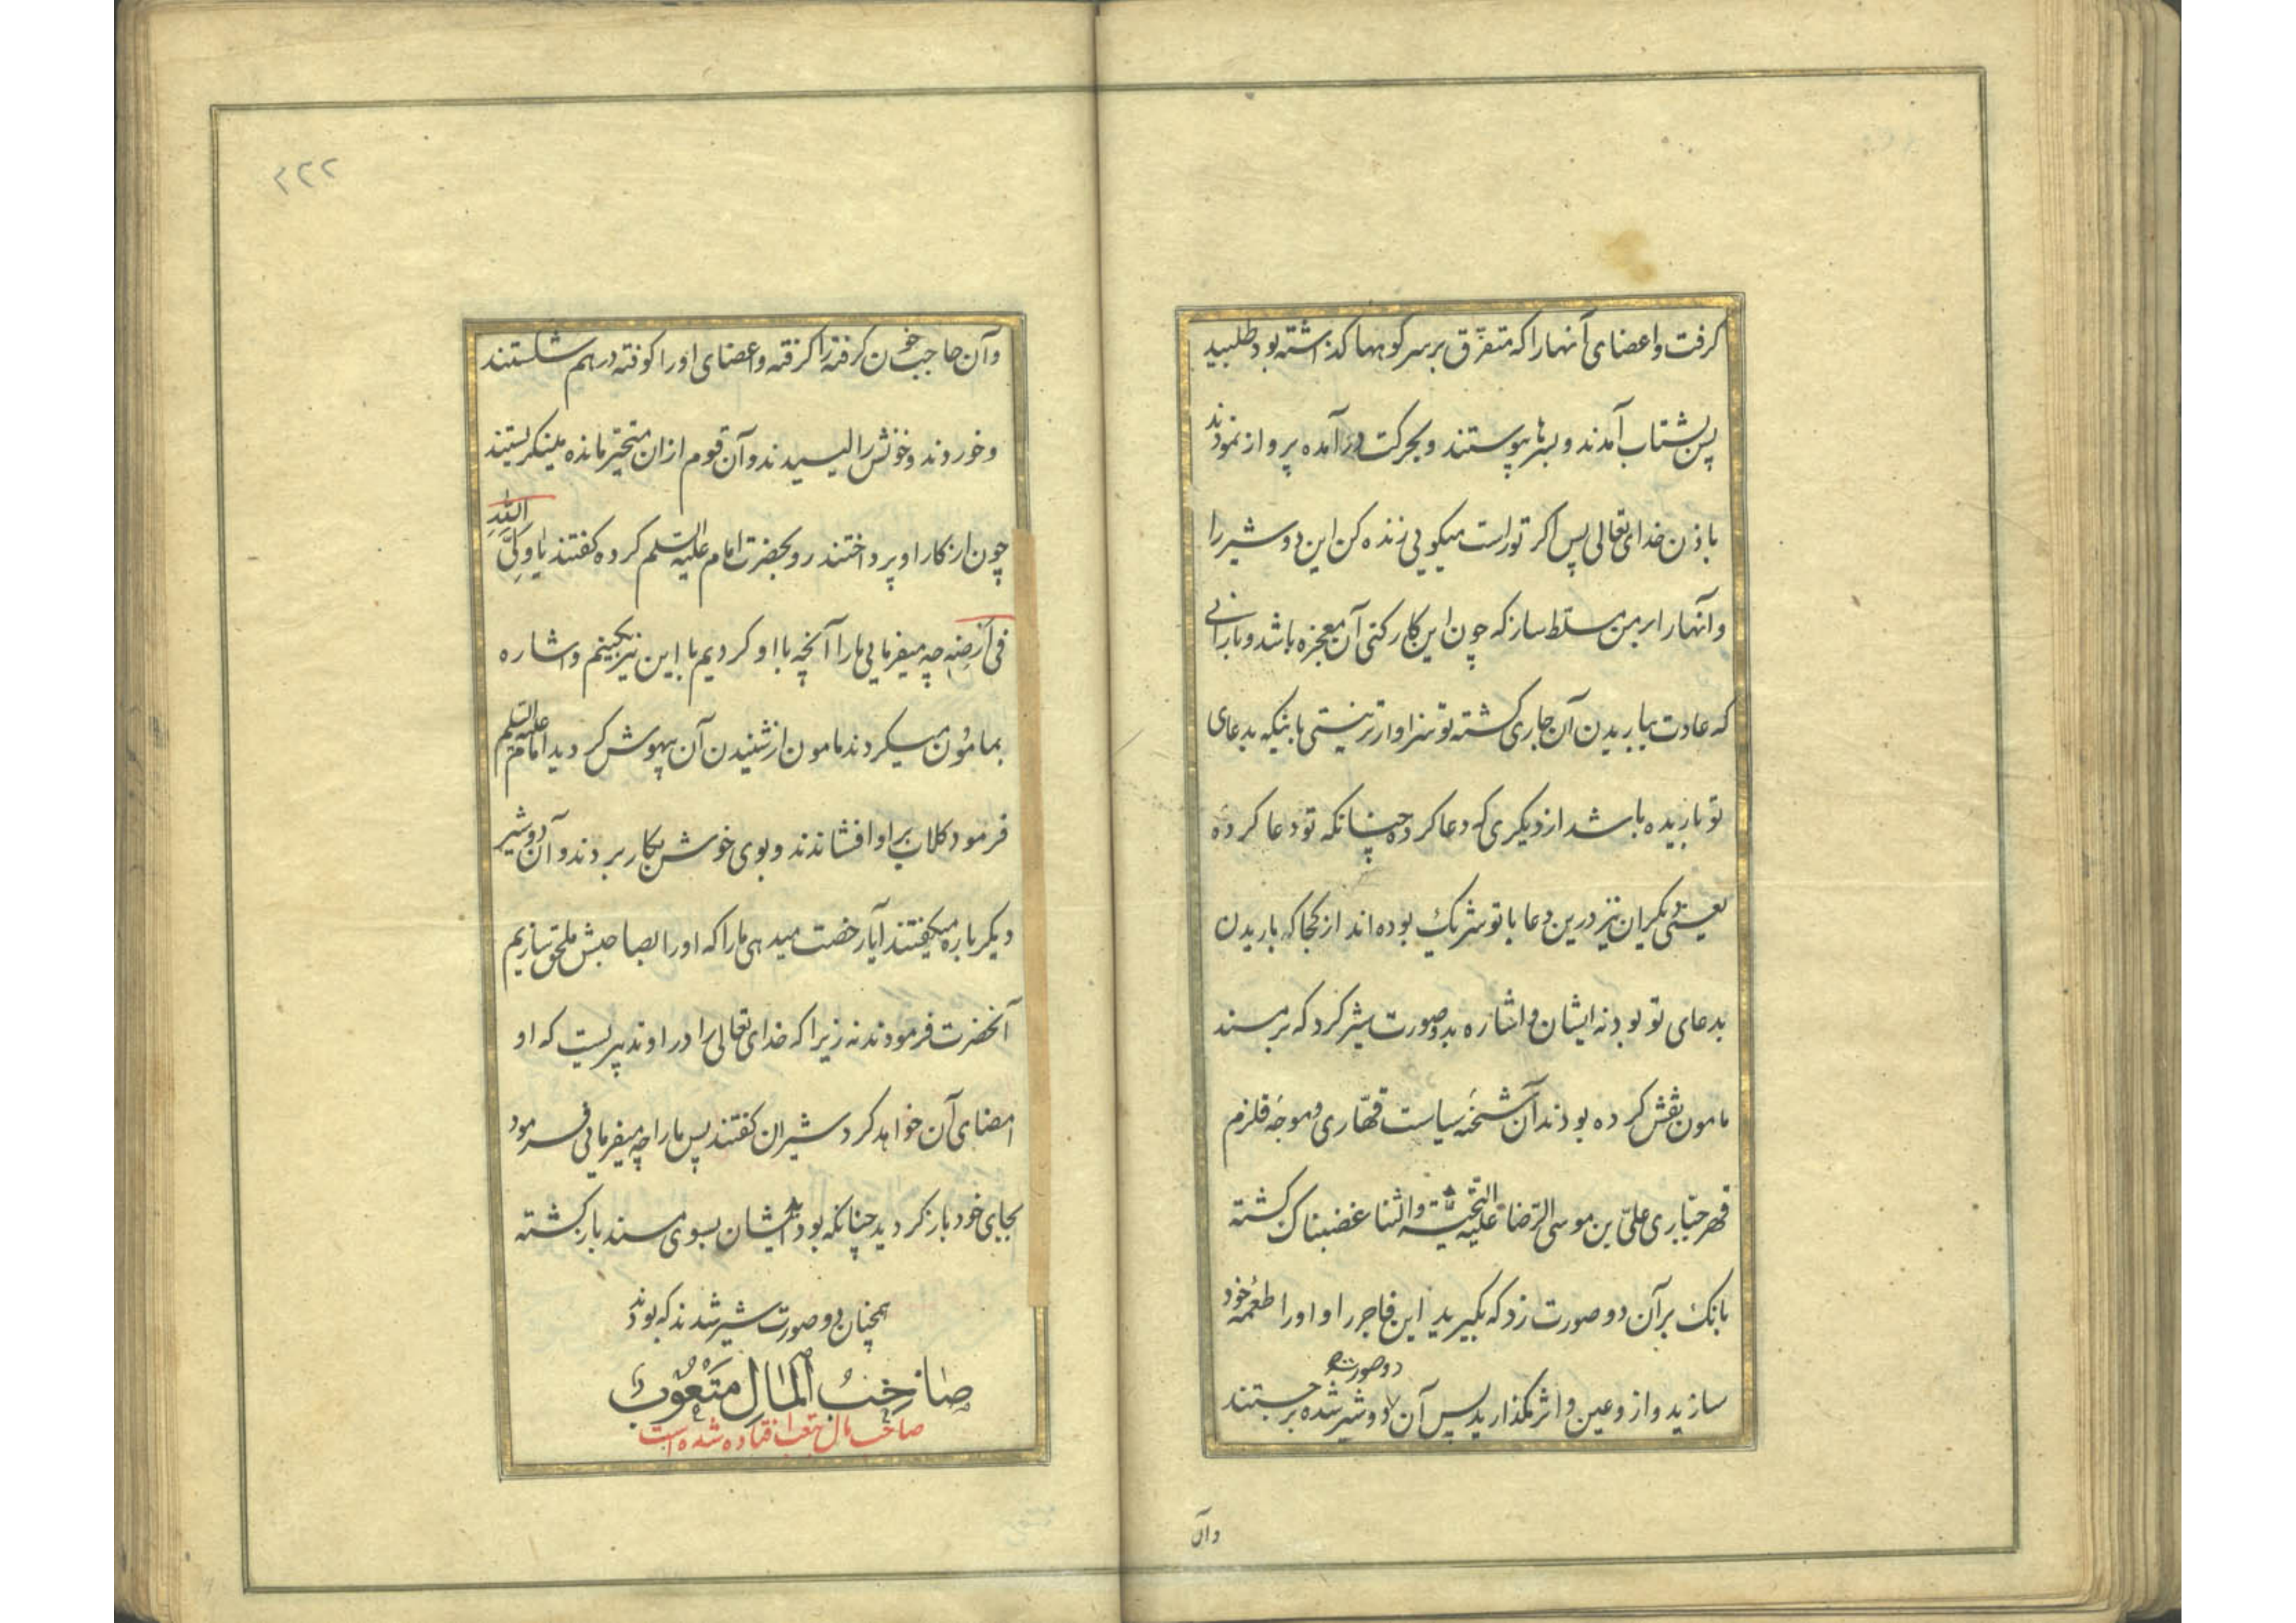 گرفت و اعضای آنها را که متفرّق بر سر کوهها گذاشته بود طلبید
پس بشتاب آمدند و بسرها پیوستند و بحرکت درآمده پرواز نمودند
باذن خدای تعالی پس اگر تو راست میگویی زنده کن این دو شیر را
و آنها را بر من مسلط ساز که چون این کار کنی آن معجزه باشد و بارانی
که عادت بباریدن آن جاری گشته تو سزاوارتر نیستی باینکه بدعای
تو باریده باشد از دیگری که دعا کرده چنانکه تو دعا کردهٔ
یعنی دیگران نیز درین دعا با تو شریک بوده اند از کجا که باریدن
بدعای تو بود نه ایشان و اشاره بدو صورت شیر کرد که بر مسند
مامون نقش کرده بودند آن شحنهٔ سیاست قهّاری و موجهٔ قلزم
قهر جبّاری علیّ بن موسی الرّضا علیه التّحیّة و الثنا غضبناک گشته
بانک بر آن دو صورت زد که بگیرید این فاجر را و او را طعمهٔ خود
سازید و از و عین و اثر مگذارید پس آن دو صورت دو شیر شده برجستند
وآن
۲۲۲
و آن حاجب خون گرفته را گرفته و اعضای او را کوفته درهم شکستند
و خوردند و خونش را لیسیدند و آن قوم ازان متحیّر مانده مینگریستند
چون از کار او پرداختند رو بحضرت امام علیه السّلم کرده گفتند یا ولیّ الله
فی ارضه چه میفرمایی ما را آنچه با او کردیم با این نیز بکنیم و اشاره
بمامون میکردند مامون از شنیدن آن بیهوش گردید امام علیه السّلم
فرمود گلاب بر او افشاندند و بوی خوش بکار بردند و آن دو شیر
دیگر باره میگفتند آیا رخصت میدهی ما را که او را بصاحبش ملحق سازیم
آنحضرت فرمودند نه زیرا که خدای تعالی را در او تدبیریست که او
امضای آن خواهد کرد شیران گفتند پس ما را چه میفرمایی فرمود
بجای خود باز گردید چنانکه بودید ایشان بسوی مسند باز گشته
همچنان دو صورت شیر شدند که بودند
صَاحِبُ المَالِ مَتعُوبٌ
صاحب مال بتعب افتاده شده است